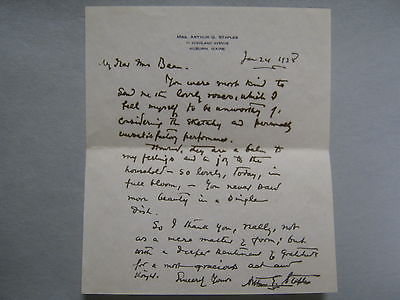 MRS. ARTHUR G. STAPLES
11 HIGHLAND AVENUE
AUBURN, MAINE
Jan 24, 1938
My dear Mrs Bean
You were most kind to
send me the lovely roses, which I
feel myself to be unworthy of,
considering the sketchy and
unsatisfactory performance.
However, they are a balm to
my feelings and a joy to the
household - so lovely, today, in
full bloom, - You never saw
more beauty in a single
dish.
So I thank you, really, not
as a mere matter of form, but
with a deeper sentiment of gratitude
for a most gracious act and
thought.
Sincerely Yours
Arthur G. Staples